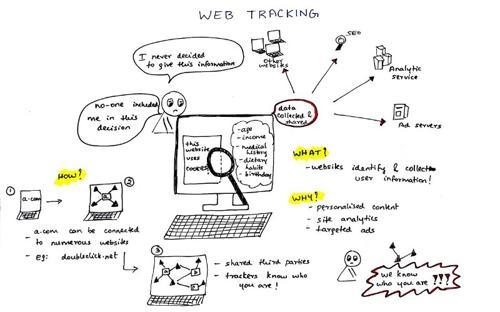 WEB TRACKING
I never decided
to give this information
no-one included
me in this
decision
Other
websites
SEO
Analytic
service
Ad servers
data
collected &
shared
this
website
uses
cookies
- age
- income
- medical
history
- dietary
habits
- birthday
WHAT?
- websites identify & collect
user information!
WHY?
- personalised content
- site analytics
- targeted ads
HOW?
1
a.com
2
- a.com can be connected
to numerous websites
- eg: doubleclick.net
3
- shared third parties
- trackers know who
you are!
we know
who you are???